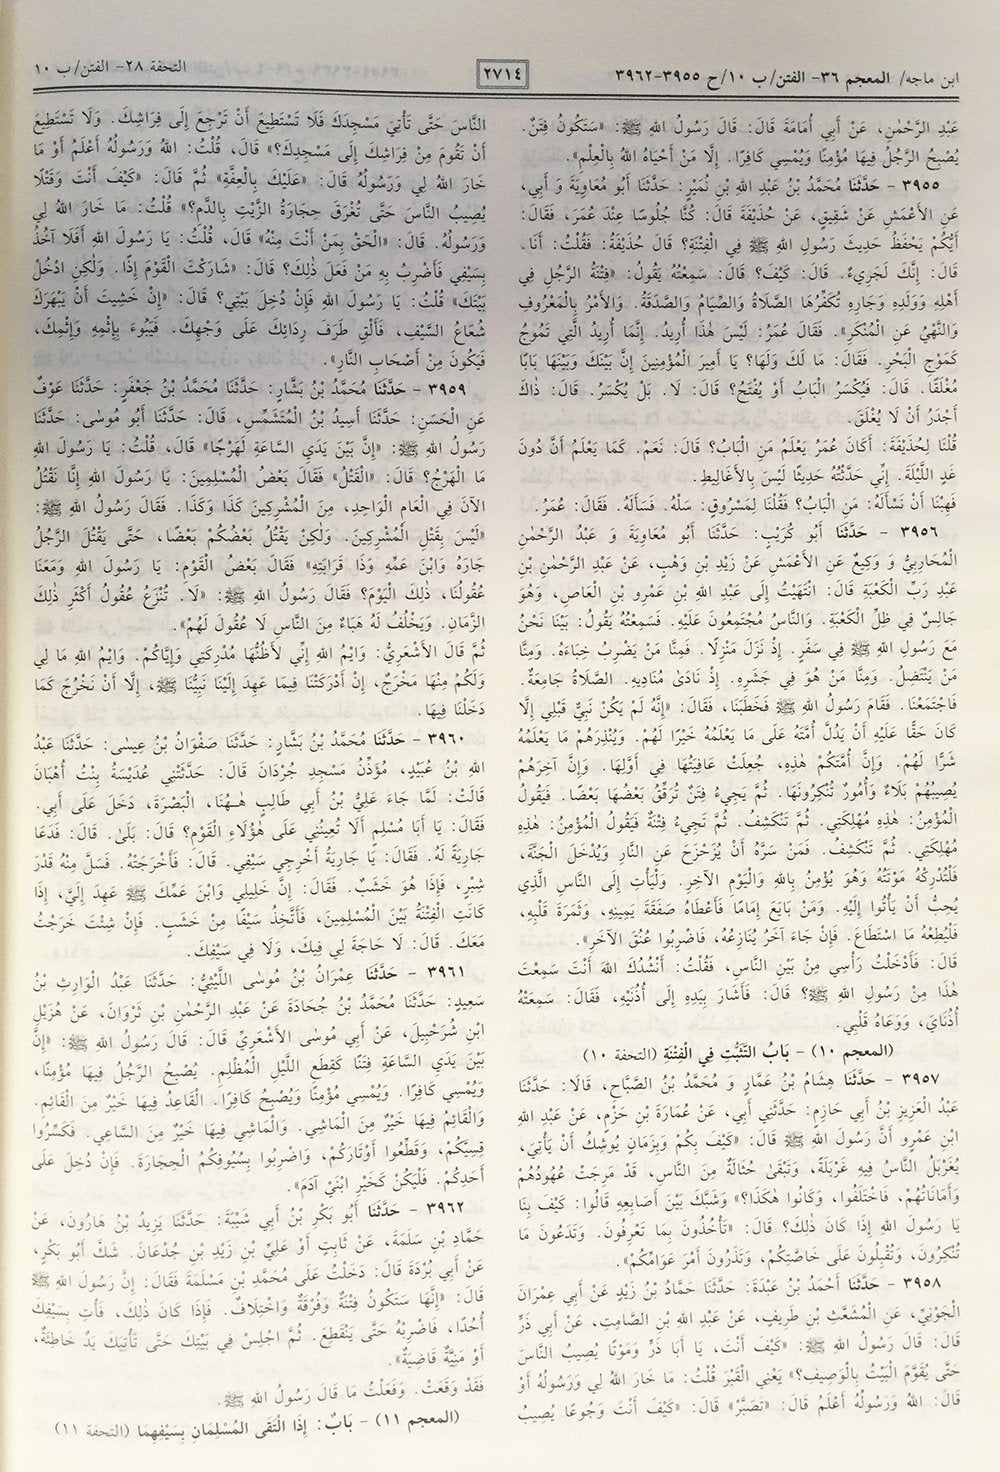 ابن ماجه/ المعجم ٣٦- الفتن/ ب ١٠/ح ٣٩٥٥-٣٩٦٢
٢٧١٤
التحفة ٢٨- الفتن/ ب ١٠
عَبْدِ الرَّحْمٰنِ، عَنْ أَبِي أُمَامَةَ قَالَ: قَالَ رَسُولُ اللهِ ﷺ: «سَتَكُونُ فِتَنٌ.
يُصْبِحُ الرَّجُلُ فِيهَا مُؤْمِنًا وَيُمْسِي كَافِرًا. إِلَّا مَنْ أَحْيَاهُ اللهُ بِالْعِلْمِ».
٣٩٥٥ - حَدَّثَنَا مُحَمَّدُ بْنُ عَبْدِ اللهِ بْنِ نُمَيْرٍ: حَدَّثَنَا أَبُو مُعَاوِيَةَ وَ أَبِي،
عَنِ الأَعْمَشِ عَنْ شَقِيقٍ، عَنْ حُذَيْفَةَ قَالَ: كُنَّا جُلُوسًا عِنْدَ عُمَرَ، فَقَالَ:
أَيُّكُمْ يَحْفَظُ حَدِيثَ رَسُولِ اللهِ ﷺ فِي الْفِتْنَةِ؟ قَالَ حُذَيْفَةُ: فَقُلْتُ: أَنَا.
قَالَ: إِنَّكَ لَجَرِيءٌ. قَالَ: كَيْفَ؟ قَالَ: سَمِعْتُهُ يَقُولُ: «فِتْنَةُ الرَّجُلِ فِي
أَهْلِهِ وَوَلَدِهِ وَجَارِهِ تُكَفِّرُهَا الصَّلَاةُ وَالصِّيَامُ وَالصَّدَقَةُ. وَالأَمْرُ بِالْمَعْرُوفِ
وَالنَّهْيُ عَنِ الْمُنْكَرِ». فَقَالَ عُمَرُ: لَيْسَ هٰذَا أُرِيدُ. إِنَّمَا أُرِيدُ الَّتِي تَمُوجُ
كَمَوْجِ الْبَحْرِ. فَقَالَ: مَا لَكَ وَلَهَا؟ يَا أَمِيرَ الْمُؤْمِنِينَ إِنَّ بَيْنَكَ وَبَيْنَهَا بَابًا
مُغْلَقًا. قَالَ: فَيُكْسَرُ الْبَابُ أَوْ يُفْتَحُ؟ قَالَ: لَا. بَلْ يُكْسَرُ. قَالَ: ذَاكَ
أَجْدَرُ أَنْ لَا يُغْلَقَ.
قُلْنَا لِحُذَيْفَةَ: أَكَانَ عُمَرُ يَعْلَمُ مَنِ الْبَابُ؟ قَالَ: نَعَمْ. كَمَا يَعْلَمُ أَنَّ دُونَ
غَدٍ اللَّيْلَةَ. إِنِّي حَدَّثْتُهُ حَدِيثًا لَيْسَ بِالأَغَالِيطِ.
فَهِبْنَا أَنْ نَسْأَلَهُ: مَنِ الْبَابُ؟ فَقُلْنَا لِمَسْرُوقٍ: سَلْهُ. فَسَأَلَهُ. فَقَالَ: عُمَرُ.
٣٩٥٦ - حَدَّثَنَا أَبُو كُرَيْبٍ: حَدَّثَنَا أَبُو مُعَاوِيَةَ وَ عَبْدُ الرَّحْمٰنِ
الْمُحَارِبِيُّ وَ وَكِيعٌ عَنِ الأَعْمَشِ عَنْ زَيْدِ بْنِ وَهْبٍ، عَنْ عَبْدِ الرَّحْمٰنِ بْنِ
عَبْدِ رَبِّ الْكَعْبَةِ قَالَ: انْتَهَيْتُ إِلَى عَبْدِ اللهِ بْنِ عَمْرِو بْنِ الْعَاصِ، وَهُوَ
جَالِسٌ فِي ظِلِّ الْكَعْبَةِ. وَالنَّاسُ مُجْتَمِعُونَ عَلَيْهِ. فَسَمِعْتُهُ يَقُولُ: بَيْنَا نَحْنُ
مَعَ رَسُولِ اللهِ ﷺ فِي سَفَرٍ. إِذْ نَزَلَ مَنْزِلًا. فَمِنَّا مَنْ يَضْرِبُ خِبَاءَهُ. وَمِنَّا
مَنْ يَنْتَضِلُ. وَمِنَّا مَنْ هُوَ فِي جَشَرِهِ. إِذْ نَادَىٰ مُنَادِيهِ. الصَّلَاةُ جَامِعَةٌ.
فَاجْتَمَعْنَا. فَقَامَ رَسُولُ اللهِ ﷺ فَخَطَبَنَا، فَقَالَ: «إِنَّهُ لَمْ يَكُنْ نَبِيٌّ قَبْلِي إِلَّا
كَانَ حَقًّا عَلَيْهِ أَنْ يَدُلَّ أُمَّتَهُ عَلَى مَا يَعْلَمُهُ خَيْرًا لَهُمْ. وَيُنْذِرَهُمْ مَا يَعْلَمُهُ
شَرًّا لَهُمْ. وَإِنَّ أُمَّتَكُمْ هٰذِهِ، جُعِلَتْ عَافِيَتُهَا فِي أَوَّلِهَا. وَإِنَّ آخِرَهُمْ
يُصِيبُهُمْ بَلَاءٌ وَأُمُورٌ تُنْكِرُونَهَا. ثُمَّ يَجِيءُ فِتَنٌ تُرَقِّقُ بَعْضُهَا بَعْضًا. فَيَقُولُ
الْمُؤْمِنُ: هٰذِهِ مُهْلِكَتِي. ثُمَّ تَنْكَشِفُ. ثُمَّ تَجِيءُ فِتْنَةٌ فَيَقُولُ الْمُؤْمِنُ: هٰذِهِ
مُهْلِكَتِي. ثُمَّ تَنْكَشِفُ. فَمَنْ سَرَّهُ أَنْ يُزَحْزَحَ عَنِ النَّارِ وَيُدْخَلَ الْجَنَّةَ،
فَلْتُدْرِكْهُ مَوْتَتُهُ وَهُوَ يُؤْمِنُ بِاللهِ وَالْيَوْمِ الآخِرِ. وَلْيَأْتِ إِلَى النَّاسِ الَّذِي
يُحِبُّ أَنْ يَأْتُوا إِلَيْهِ. وَمَنْ بَايَعَ إِمَامًا فَأَعْطَاهُ صَفْقَةَ يَمِينِهِ، وَثَمَرَةَ قَلْبِهِ،
فَلْيُطِعْهُ مَا اسْتَطَاعَ. فَإِنْ جَاءَ آخَرُ يُنَازِعُهُ، فَاضْرِبُوا عُنُقَ الآخَرِ».
قَالَ: فَأَدْخَلْتُ رَأْسِي مِنْ بَيْنِ النَّاسِ، فَقُلْتُ: أَنْشُدُكَ اللهَ أَنْتَ سَمِعْتَ
هٰذَا مِنْ رَسُولِ اللهِ ﷺ؟ قَالَ: فَأَشَارَ بِيَدِهِ إِلَى أُذُنَيْهِ، فَقَالَ: سَمِعَتْهُ
أُذُنَايَ، وَوَعَاهُ قَلْبِي.
(المعجم ١٠) - بَابُ التَّثَبُّتِ فِي الْفِتْنَةِ (التحفة ١٠)
٣٩٥٧ - حَدَّثَنَا هِشَامُ بْنُ عَمَّارٍ وَ مُحَمَّدُ بْنُ الصَّبَّاحِ، قَالَا: حَدَّثَنَا
عَبْدُ الْعَزِيزِ بْنُ أَبِي حَازِمٍ: حَدَّثَنِي أَبِي، عَنْ عُمَارَةَ بْنِ حَزْمٍ، عَنْ عَبْدِ اللهِ
ابْنِ عَمْرٍو أَنَّ رَسُولَ اللهِ ﷺ قَالَ: «كَيْفَ بِكُمْ وَبِزَمَانٍ يُوشِكُ أَنْ يَأْتِيَ،
يُغَرْبَلُ النَّاسُ فِيهِ غَرْبَلَةً، وَتَبْقَىٰ حُثَالَةٌ مِنَ النَّاسِ، قَدْ مَرِجَتْ عُهُودُهُمْ
وَأَمَانَاتُهُمْ، فَاخْتَلَفُوا، وَكَانُوا هٰكَذَا؟» وَشَبَّكَ بَيْنَ أَصَابِعِهِ قَالُوا: كَيْفَ بِنَا
يَا رَسُولَ اللهِ إِذَا كَانَ ذٰلِكَ؟ قَالَ: «تَأْخُذُونَ بِمَا تَعْرِفُونَ. وَتَدَعُونَ مَا
تُنْكِرُونَ، وَتُقْبِلُونَ عَلَى خَاصَّتِكُمْ، وَتَذَرُونَ أَمْرَ عَوَامِّكُمْ».
٣٩٥٨ - حَدَّثَنَا أَحْمَدُ بْنُ عَبْدَةَ: حَدَّثَنَا حَمَّادُ بْنُ زَيْدٍ عَنْ أَبِي عِمْرَانَ
الْجَوْنِيِّ، عَنِ الْمُشَعَّثِ بْنِ طَرِيفٍ، عَنْ عَبْدِ اللهِ بْنِ الصَّامِتِ، عَنْ أَبِي ذَرٍّ
قَالَ: قَالَ رَسُولُ اللهِ ﷺ: «كَيْفَ أَنْتَ، يَا أَبَا ذَرٍّ وَمَوْتًا يُصِيبُ النَّاسَ
حَتَّى يُقَوَّمَ الْبَيْتُ بِالْوَصِيفِ؟» يَعْنِي الْقَبْرَ قُلْتُ: مَا خَارَ اللهُ لِي وَرَسُولُهُ أَوْ
قَالَ: اللهُ وَرَسُولُهُ أَعْلَمُ قَالَ: «تَصَبَّرْ» قَالَ: «كَيْفَ أَنْتَ وَجُوعًا يُصِيبُ
النَّاسَ حَتَّى تَأْتِيَ مَسْجِدَكَ فَلَا تَسْتَطِيعَ أَنْ تَرْجِعَ إِلَى فِرَاشِكَ. وَلَا تَسْتَطِيعَ
أَنْ تَقُومَ مِنْ فِرَاشِكَ إِلَى مَسْجِدِكَ؟» قَالَ، قُلْتُ: اللهُ وَرَسُولُهُ أَعْلَمُ أَوْ مَا
خَارَ اللهُ لِي وَرَسُولُهُ قَالَ: «عَلَيْكَ بِالْعِفَّةِ» ثُمَّ قَالَ: «كَيْفَ أَنْتَ وَقَتْلًا
يُصِيبُ النَّاسَ حَتَّى تُغْرَقَ حِجَارَةُ الزَّيْتِ بِالدَّمِ؟» قُلْتُ: مَا خَارَ اللهُ لِي
وَرَسُولُهُ. قَالَ: «الْحَقْ بِمَنْ أَنْتَ مِنْهُ» قَالَ، قُلْتُ: يَا رَسُولَ اللهِ أَفَلَا آخُذُ
بِسَيْفِي فَأَضْرِبُ بِهِ مَنْ فَعَلَ ذٰلِكَ؟ قَالَ: «شَارَكْتَ الْقَوْمَ إِذًا. وَلٰكِنِ ادْخُلْ
بَيْتَكَ» قُلْتُ: يَا رَسُولَ اللهِ فَإِنْ دُخِلَ بَيْتِي؟ قَالَ: «إِنْ خَشِيتَ أَنْ يَبْهَرَكَ
شُعَاعُ السَّيْفِ، فَأَلْقِ طَرَفَ رِدَائِكَ عَلَى وَجْهِكَ. فَيَبُوءَ بِإِثْمِهِ وَإِثْمِكَ،
فَيَكُونَ مِنْ أَصْحَابِ النَّارِ».
٣٩٥٩ - حَدَّثَنَا مُحَمَّدُ بْنُ بَشَّارٍ: حَدَّثَنَا مُحَمَّدُ بْنُ جَعْفَرٍ: حَدَّثَنَا عَوْفٌ
عَنِ الْحَسَنِ: حَدَّثَنَا أَسِيدُ بْنُ الْمُتَشَمِّسِ، قَالَ: حَدَّثَنَا أَبُو مُوسَى: حَدَّثَنَا
رَسُولُ اللهِ ﷺ: «إِنَّ بَيْنَ يَدَيِ السَّاعَةِ لَهَرْجًا» قَالَ، قُلْتُ: يَا رَسُولَ اللهِ
مَا الْهَرْجُ؟ قَالَ: «الْقَتْلُ» فَقَالَ بَعْضُ الْمُسْلِمِينَ: يَا رَسُولَ اللهِ إِنَّا نَقْتُلُ
الآنَ فِي الْعَامِ الْوَاحِدِ، مِنَ الْمُشْرِكِينَ كَذَا وَكَذَا. فَقَالَ رَسُولُ اللهِ ﷺ:
«لَيْسَ بِقَتْلِ الْمُشْرِكِينَ. وَلٰكِنْ يَقْتُلُ بَعْضُكُمْ بَعْضًا، حَتَّى يَقْتُلَ الرَّجُلُ
جَارَهُ وَابْنَ عَمِّهِ وَذَا قَرَابَتِهِ» فَقَالَ بَعْضُ الْقَوْمِ: يَا رَسُولَ اللهِ وَمَعَنَا
عُقُولُنَا، ذٰلِكَ الْيَوْمَ؟ فَقَالَ رَسُولُ اللهِ ﷺ: «لَا. تُنْزَعُ عُقُولُ أَكْثَرِ ذٰلِكَ
الزَّمَانِ. وَيَخْلُفُ لَهُ هَبَاءٌ مِنَ النَّاسِ لَا عُقُولَ لَهُمْ».
ثُمَّ قَالَ الأَشْعَرِيُّ: وَايْمُ اللهِ إِنِّي لأَظُنُّهَا مُدْرِكَتِي وَإِيَّاكُمْ. وَايْمُ اللهِ مَا لِي
وَلَكُمْ مِنْهَا مَخْرَجٌ، إِنْ أَدْرَكَتْنَا فِيمَا عَهِدَ إِلَيْنَا نَبِيُّنَا ﷺ، إِلَّا أَنْ نَخْرُجَ كَمَا
دَخَلْنَا فِيهَا.
٣٩٦٠ - حَدَّثَنَا مُحَمَّدُ بْنُ بَشَّارٍ: حَدَّثَنَا صَفْوَانُ بْنُ عِيسَى: حَدَّثَنَا عَبْدُ
اللهِ بْنُ عُبَيْدٍ، مُؤَذِّنُ مَسْجِدِ جُرْدَانَ قَالَ: حَدَّثَتْنِي عُدَيْسَةُ بِنْتُ أُهْبَانَ
قَالَتْ: لَمَّا جَاءَ عَلِيُّ بْنُ أَبِي طَالِبٍ هٰـهُنَا، الْبَصْرَةَ، دَخَلَ عَلَى أَبِي.
فَقَالَ: يَا أَبَا مُسْلِمٍ أَلَا تُعِينُنِي عَلَى هٰؤُلَاءِ الْقَوْمِ؟ قَالَ: بَلَىٰ. قَالَ: فَدَعَا
جَارِيَةً لَهُ. فَقَالَ: يَا جَارِيَةُ أَخْرِجِي سَيْفِي. قَالَ: فَأَخْرَجَتْهُ. فَسَلَّ مِنْهُ قَدْرَ
شِبْرٍ، فَإِذَا هُوَ خَشَبٌ. فَقَالَ: إِنَّ خَلِيلِي وَابْنَ عَمِّكَ ﷺ عَهِدَ إِلَيَّ، إِذَا
كَانَتِ الْفِتْنَةُ بَيْنَ الْمُسْلِمِينَ، فَأَتَّخِذُ سَيْفًا مِنْ خَشَبٍ. فَإِنْ شِئْتَ خَرَجْتُ
مَعَكَ. قَالَ: لَا حَاجَةَ لِي فِيكَ، وَلَا فِي سَيْفِكَ.
٣٩٦١ - حَدَّثَنَا عِمْرَانُ بْنُ مُوسَى اللَّيْثِيُّ: حَدَّثَنَا عَبْدُ الْوَارِثِ بْنُ
سَعِيدٍ: حَدَّثَنَا مُحَمَّدُ بْنُ جُحَادَةَ عَنْ عَبْدِ الرَّحْمٰنِ بْنِ ثَرْوَانَ، عَنْ هُزَيْلِ
ابْنِ شُرَحْبِيلَ، عَنْ أَبِي مُوسَى الأَشْعَرِيِّ قَالَ: قَالَ رَسُولُ اللهِ ﷺ: «إِنَّ
بَيْنَ يَدَيِ السَّاعَةِ فِتَنًا كَقِطَعِ اللَّيْلِ الْمُظْلِمِ. يُصْبِحُ الرَّجُلُ فِيهَا مُؤْمِنًا،
وَيُمْسِي كَافِرًا. وَيُمْسِي مُؤْمِنًا وَيُصْبِحُ كَافِرًا. الْقَاعِدُ فِيهَا خَيْرٌ مِنَ الْقَائِمِ.
وَالْقَائِمُ فِيهَا خَيْرٌ مِنَ الْمَاشِي. وَالْمَاشِي فِيهَا خَيْرٌ مِنَ السَّاعِي. فَكَسِّرُوا
قِسِيَّكُمْ، وَقَطِّعُوا أَوْتَارَكُمْ، وَاضْرِبُوا بِسُيُوفِكُمُ الْحِجَارَةَ. فَإِنْ دُخِلَ عَلَى
أَحَدِكُمْ. فَلْيَكُنْ كَخَيْرِ ابْنَيْ آدَمَ».
٣٩٦٢ - حَدَّثَنَا أَبُو بَكْرِ بْنُ أَبِي شَيْبَةَ: حَدَّثَنَا يَزِيدُ بْنُ هَارُونَ، عَنْ
حَمَّادِ بْنِ سَلَمَةَ، عَنْ ثَابِتٍ أَوْ عَلِيِّ بْنِ زَيْدِ بْنِ جُدْعَانَ. شَكَّ أَبُو بَكْرٍ،
عَنْ أَبِي بُرْدَةَ قَالَ: دَخَلْتُ عَلَى مُحَمَّدِ بْنِ مَسْلَمَةَ فَقَالَ: إِنَّ رَسُولَ اللهِ ﷺ
قَالَ: «إِنَّهَا سَتَكُونُ فِتْنَةٌ وَفُرْقَةٌ وَاخْتِلَافٌ. فَإِذَا كَانَ ذٰلِكَ، فَأْتِ بِسَيْفِكَ
أُحُدًا، فَاضْرِبْهُ حَتَّى يَنْقَطِعَ. ثُمَّ اجْلِسْ فِي بَيْتِكَ حَتَّى تَأْتِيَكَ يَدٌ خَاطِئَةٌ،
أَوْ مَنِيَّةٌ قَاضِيَةٌ».
فَقَدْ وَقَعَتْ. وَفَعَلْتُ مَا قَالَ رَسُولُ اللهِ ﷺ.
(المعجم ١١) - بَابٌ: إِذَا الْتَقَى الْمُسْلِمَانِ بِسَيْفِهِمَا (التحفة ١١)